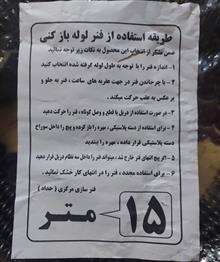 طریقه استفاده از فنر لوله باز کنی
ضمن تشکر از انتخاب این محصول به نکات زیر توجه نمائید
۱ - اندازه فنر را با توجه به طول لوله گرفته شده انتخاب کنید
۲ - با چرخاندن فنر در جهت عقربه های ساعت ، فنر به جلو و
بر عکس به عقب حرکت میکند .
۳ - در صورت استفاده از دریل با قطع و وصل کوتاه ، فنر را حرکت دهید
۴ - برای استفاده از دسته پلاستیکی ، مهره را باز کرده و پیچ را داخل سوراخ
دسته پلاستیکی قرار داده ، مهره را ببندید
۵ - اگر پیچ انتهای فنر خارج شد ، میتواند فنر را داخل سه نظام دریل قرار دهید
۶ - برای استفاده مجدد ، فنر را در انتهای کار خشک نمائید .
فنر سازی مرکزی ( حداد )
۱۵ متر